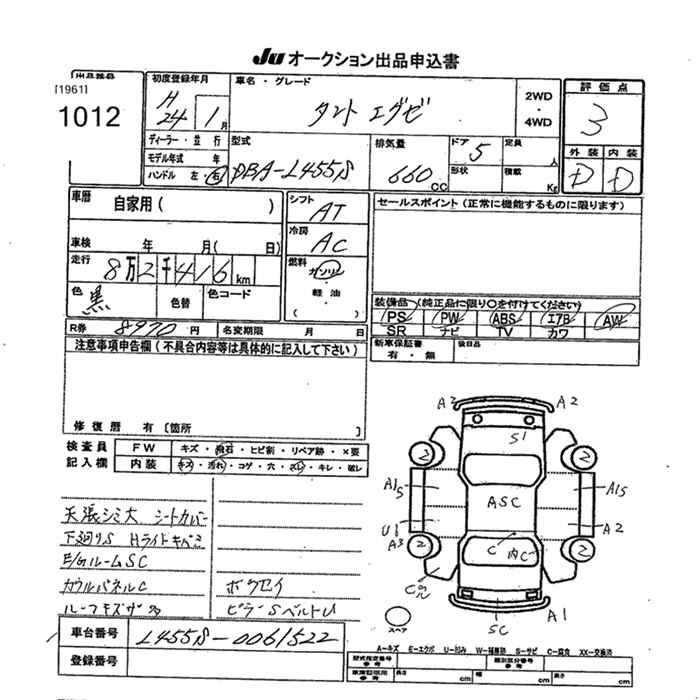 Ju オークション出品申込書
出品番号
[1961]
1012
初度登録年月
H 24 1月
車名・グレード
タント エグゼ
2WD
・
4WD
評価点
3
外装 内装
D D
ディーラー・並行
モデル年式 年
ハンドル 左・右
型式
DBA-L455S
排気量
660 CC
ドア 5
形状
定員 人
積載 Kg
車歴
自家用( )
車検 年 月( 日)
走行
8万2千416km
色 黒
色替
色コード
シフト
AT
冷房
AC
燃料
ガソリン
軽油
( )
セールスポイント(正常に機能するものに限ります)
装備品(純正品に限り○を付けてください)
PS PW ABS エアB AW
SR ナビ TV カワ
新車保証書
有・無
後日品
R券 8970円
名変期限 月 日
注意事項申告欄(不具合内容等は具体的に記入して下さい)
修復歴 有〔箇所 〕
検査員
記入欄
FW キズ・飛石・ヒビ割・リペア跡・×要
内装 キズ・汚れ・コゲ・穴・スレ・キレ・破レ
天張シミ大 シートカバー
下廻りS Hライトキバミ
E/GルームSC
カウルパネルC
ルーフキズサ多
ボウセイ
ピラーSベルトU
A2 A2
S1
2 2
A15 ASC A15
U1 A2
A3 2 C 内C 2
スペア
SC A1
車台番号 L455S-0061522
登録番号
A-キズ E-エクボ U-凹み W-補修跡 S-サビ C-腐食 XX-交換済
型式指定番号
参考
類別区分番号
参考
車庫証明用
参考
長さ cm 幅 cm 高さ cm